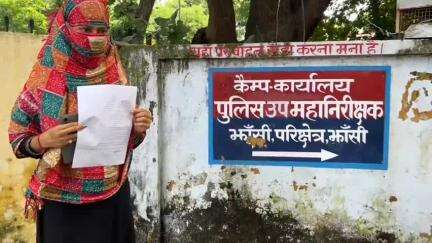 यहाँ पर पेशाब करना मना है।
कैम्प-कार्यालय
पुलिस उप महानिरीक्षक
झाँसी, परिक्षेत्र, झाँसी